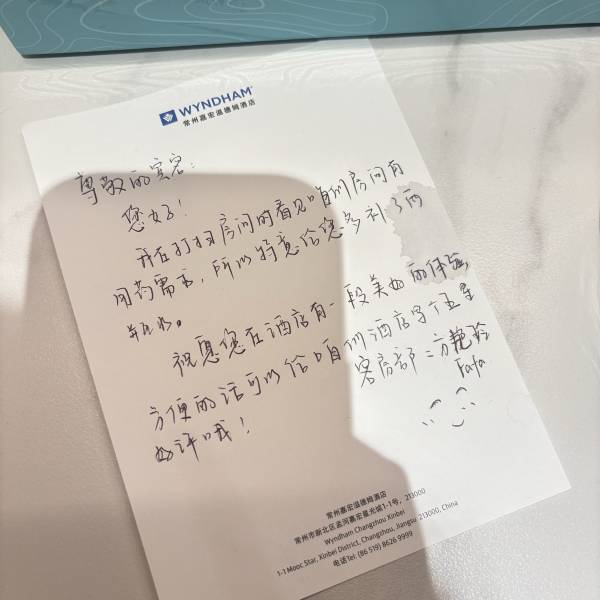 WYNDHAM
常州嘉宏温德姆酒店
尊敬的宾客：
您好！
我在打扫房间时看见咱们房间有
用药需求，所以特意给您多补了两
瓶水。
祝愿您在酒店有一段美好的体验，
方便的话可以给咱们酒店写个五星
好评哦！
客房部：方艳玲
Fafa
常州嘉宏温德姆酒店
常州市新北区孟河嘉宏星光城1-1号，213000
Wyndham Changzhou Xinbei
1-1 Mooc Star, Xinbei District, Changzhou, Jiangsu 213000, China
电话Tel: (86 519) 8626 9999